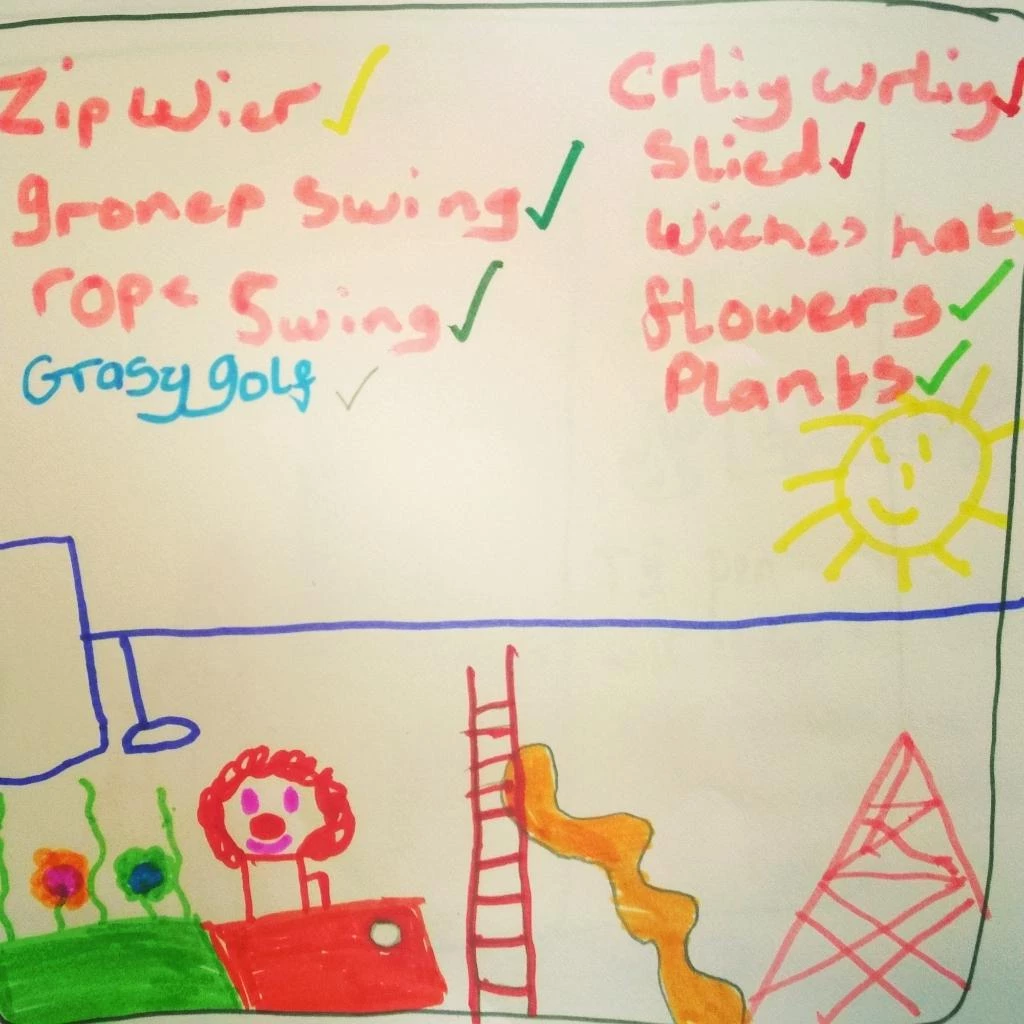 Zip Wier
groner Swing
rope Swing
Grasy golf
Crliy wrliy
Slied
Wiches hat
flowers
Plants